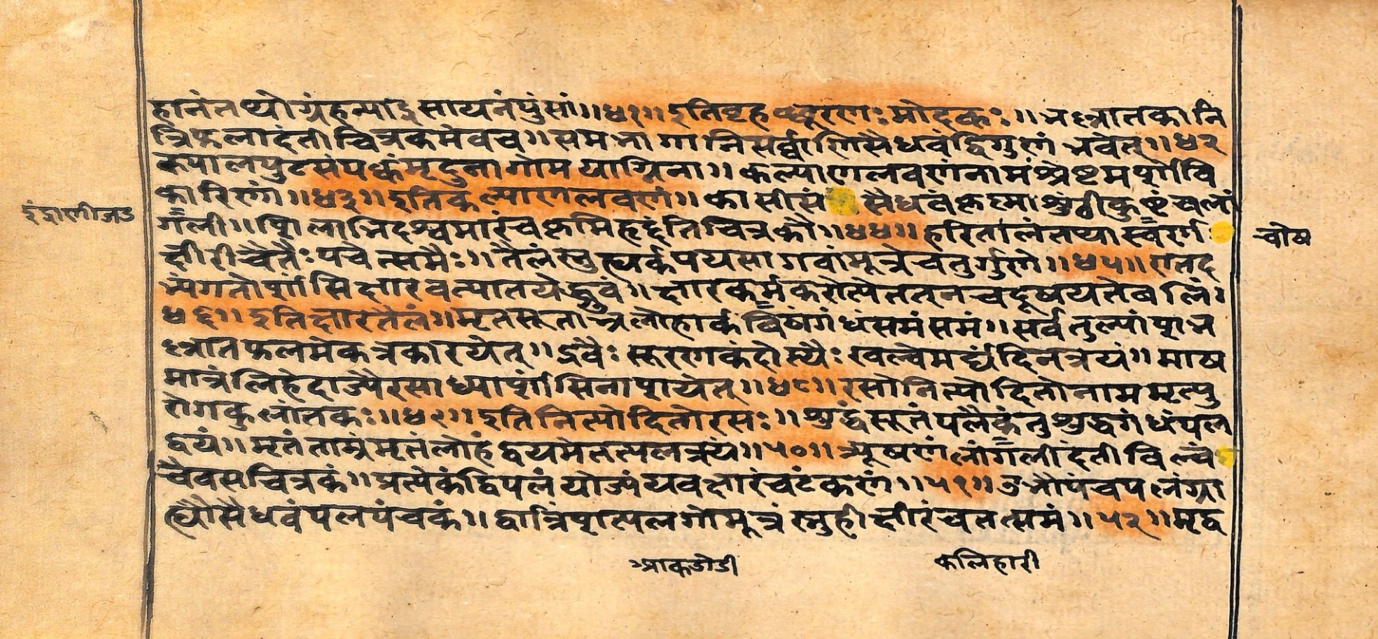 हानं तथ्योग्रंहन्याद्रसायनं पुंसां॥४१॥ इतिबृहछूरणः मोदकः॥ भल्लातकानि
त्रिफलादंती चित्रकमेवच॥ समभागानि सर्वाणि सैधवं द्विगुणं भवेत्॥४२
कपालपुटसंपक्वं मृदुना गोमयाग्निना॥ कल्याणलवणं नामं श्रेष्टमर्शोवि
कारिणां॥४३॥ इतिकल्याणलवणं॥ कासीसं सैधवं कृष्णा शुंठी कुष्टं च लां
गली॥ शिलाभिदश्वमारं च कृमिहृद्दंति चित्रकौ॥४४॥ हरितालं तथा स्वर्ण
क्षीरी चैतैः पचेत्समैः॥ तैलं स्नुह्यर्कपयसा गवांमूत्रे चतुर्गुणे॥४५॥ एतद
भ्यंगतोर्शांसि क्षारवत्पातयेद्ध्रुवं॥ क्षारकर्मकरोत्येतत् न च दूषयते बलिं।
४६॥ इतिक्षारतैलं॥ मृतसूताभ्रलोहार्कविषंगंधंसमंसमं॥ सर्वतुल्यांशभ
ल्लातफलमेकत्रकारयेत्॥ द्रवैः सूरणकंदोस्थैः खल्वेमर्द्यं दिनत्रयं॥ माष
मात्रं लिहेदाज्यैरसाध्यार्शांसिनाशयेत्॥४८॥ रसोनित्योदितोनाम मृत्यु
रोगकुलांतकः॥४९॥ इतिनित्योदितोरसः॥ शुद्धसूतंपलैकंतु शुद्धगंधंपल
द्वयं॥ मृतंताम्रंमृतंलोहं द्वयमेतत्पलत्रयं॥५०॥ त्र्यूषणंलांगलीदंतीविल्वं
चैवसचित्रकं॥ प्रत्येकंद्विपलंयोज्यंयवक्षारंचटंकणं॥५१॥ उभौपंचपलंग्रा
ह्यौसैधवंपलपंचकं॥ द्वात्रिंशत्पलगोमूत्रंस्नुहीक्षीरंचतत्समं॥५२॥ मृद्व
चोष
आकडोडी
कलिहारी